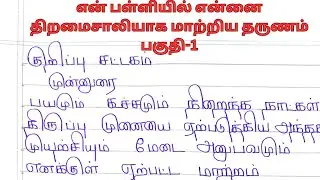 என் பள்ளியில் என்னை
திறமைசாலியாக மாற்றிய தருணம்
பகுதி-1
குறிப்பு சட்டகம்
முன்னுரை
பயமும் கூச்சமும் நிறைந்த நாட்கள்
திருப்பு முனையை ஏற்படுத்திய அந்தத்
முயற்சியும் மேடை அனுபவமும்
எனக்குள் ஏற்பட்ட மாற்றம்